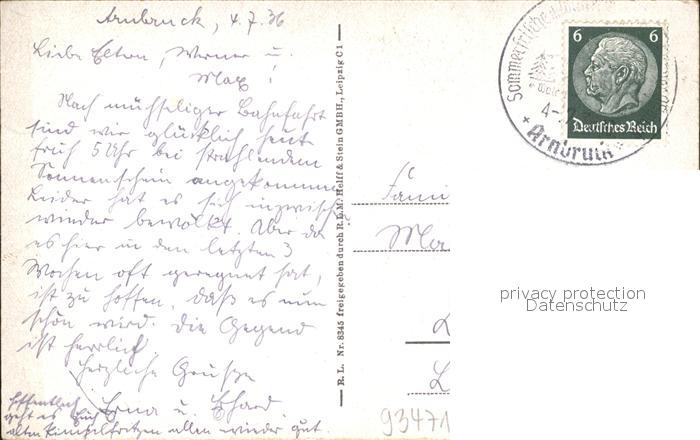 Arnbruck, 4.7.36
Liebe Eltern, Werner u.
Max!
Nach mühseliger Bahnfahrt
sind wir glücklich heute
früh 5 Uhr bei strahlendem
Sonnenschein angekommen
Leider hat es sich inzwisch
wieder bewölkt. Aber da
es hier in den letzten 3
Wochen oft geregnet hat,
ist zu hoffen, daß es nun
schön wird. Die Gegend
ist herrlich.
Herzliche Grüsse
Erna u. Erhard.
Hoffentlich
geht es Euch
alten allen wieder gut.
R. L. Nr. 8345 freigegeben durch R.L.M. Helff & Stein GMBH., Leipzig C1
Sommerfrische
4-
* Arnbruck *
6 6
Deutsches Reich
Fami
Ma
L
privacy protection
Datenschutz
93471